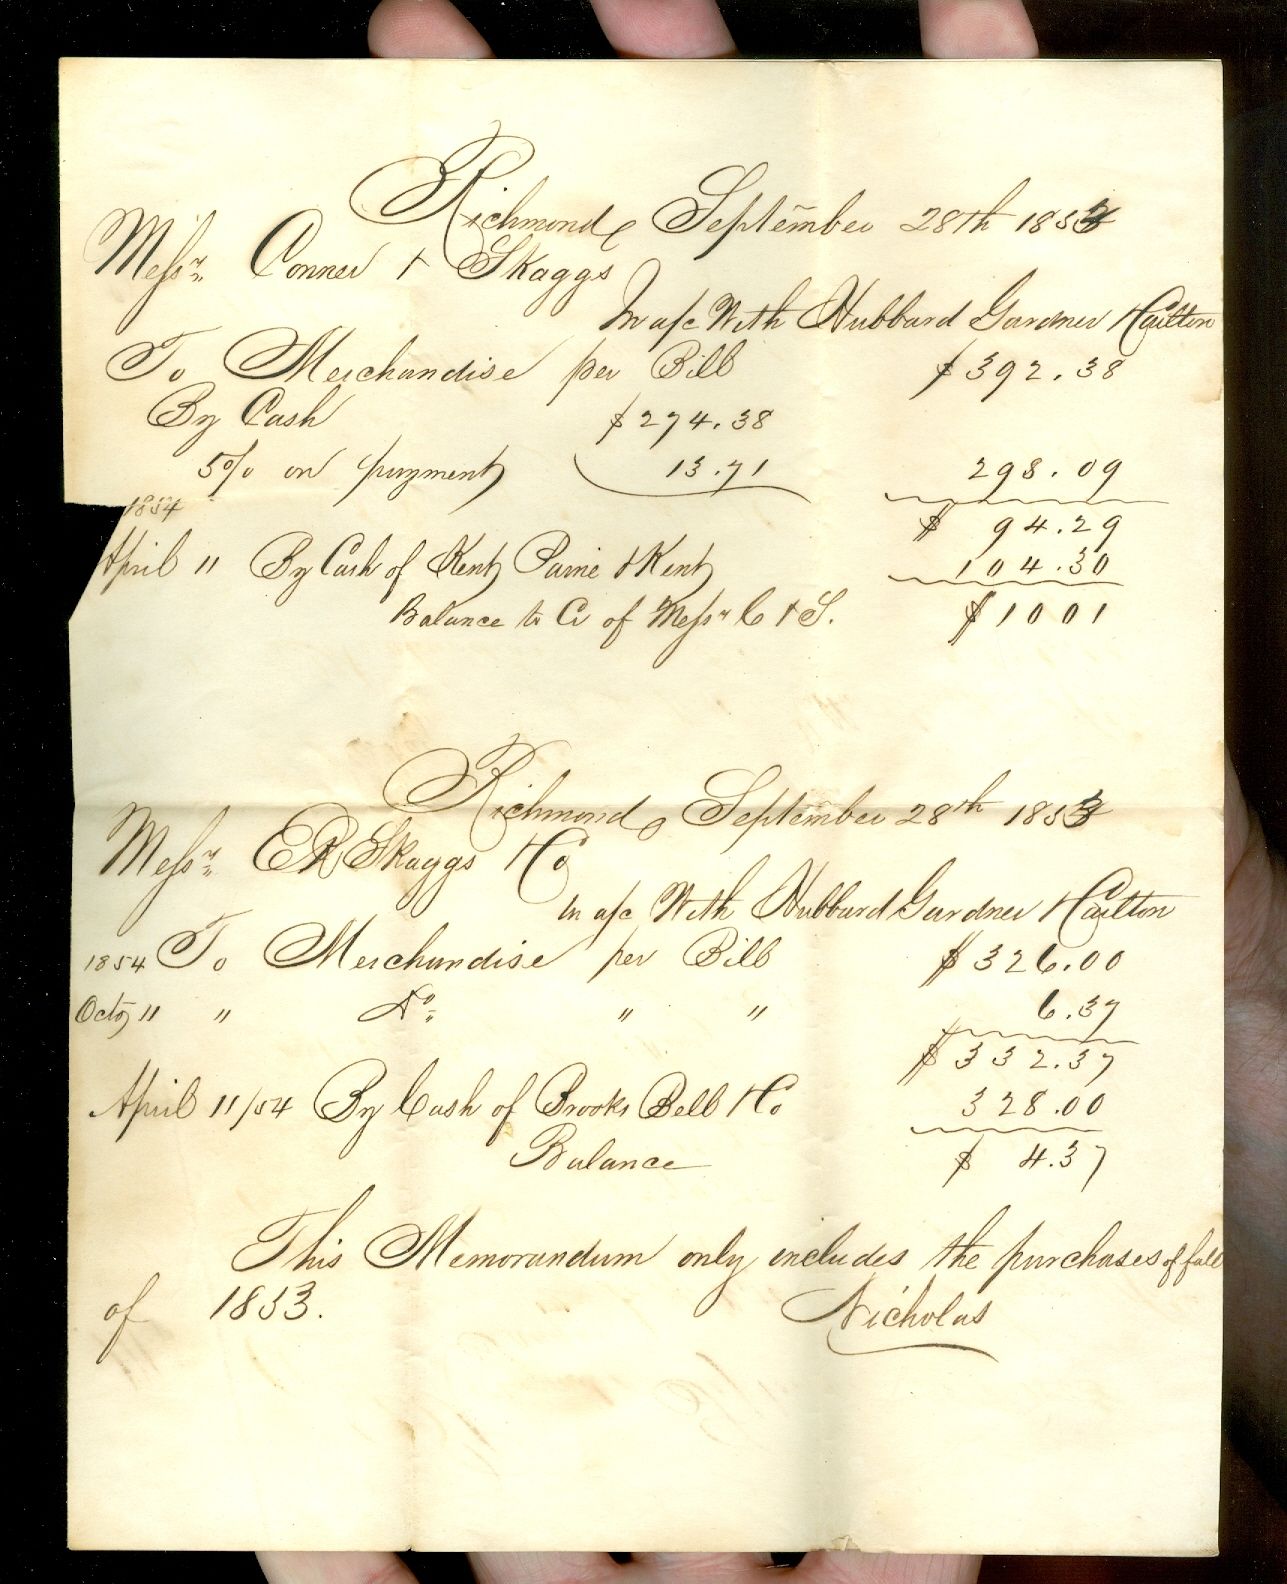 Richmond, September 28th 1853
Messrs Conner & Skaggs
In a/c With Hubbard Gardner & Carlton
To Merchandise per Bill $392.38
By Cash $274.38
5% on payment 13.71 298.09
$ 94.29
1854
April 11 By Cash of Kent Paine & Kent 104.30
Balance to Cr of Messrs C & S. $1001
Richmond, September 28th 1853
Messrs ER Skaggs & Co
In a/c With Hubbard Gardner & Carlton
1854 To Merchandise per Bill $326.00
Octo 11 " Do " " 6.37
$332.37
April 11/54 By Cash of Brooks Bell & Co 328.00
Balance $ 4.37
This Memorandum only includes the purchases of fall
of 1853. Nicholas